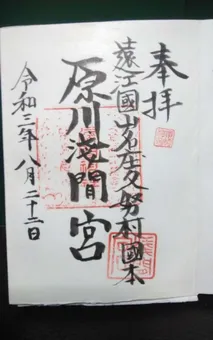 奉拝
遠江國山名庄久努村國本
原川浅間宮
令和三年八月二十二日